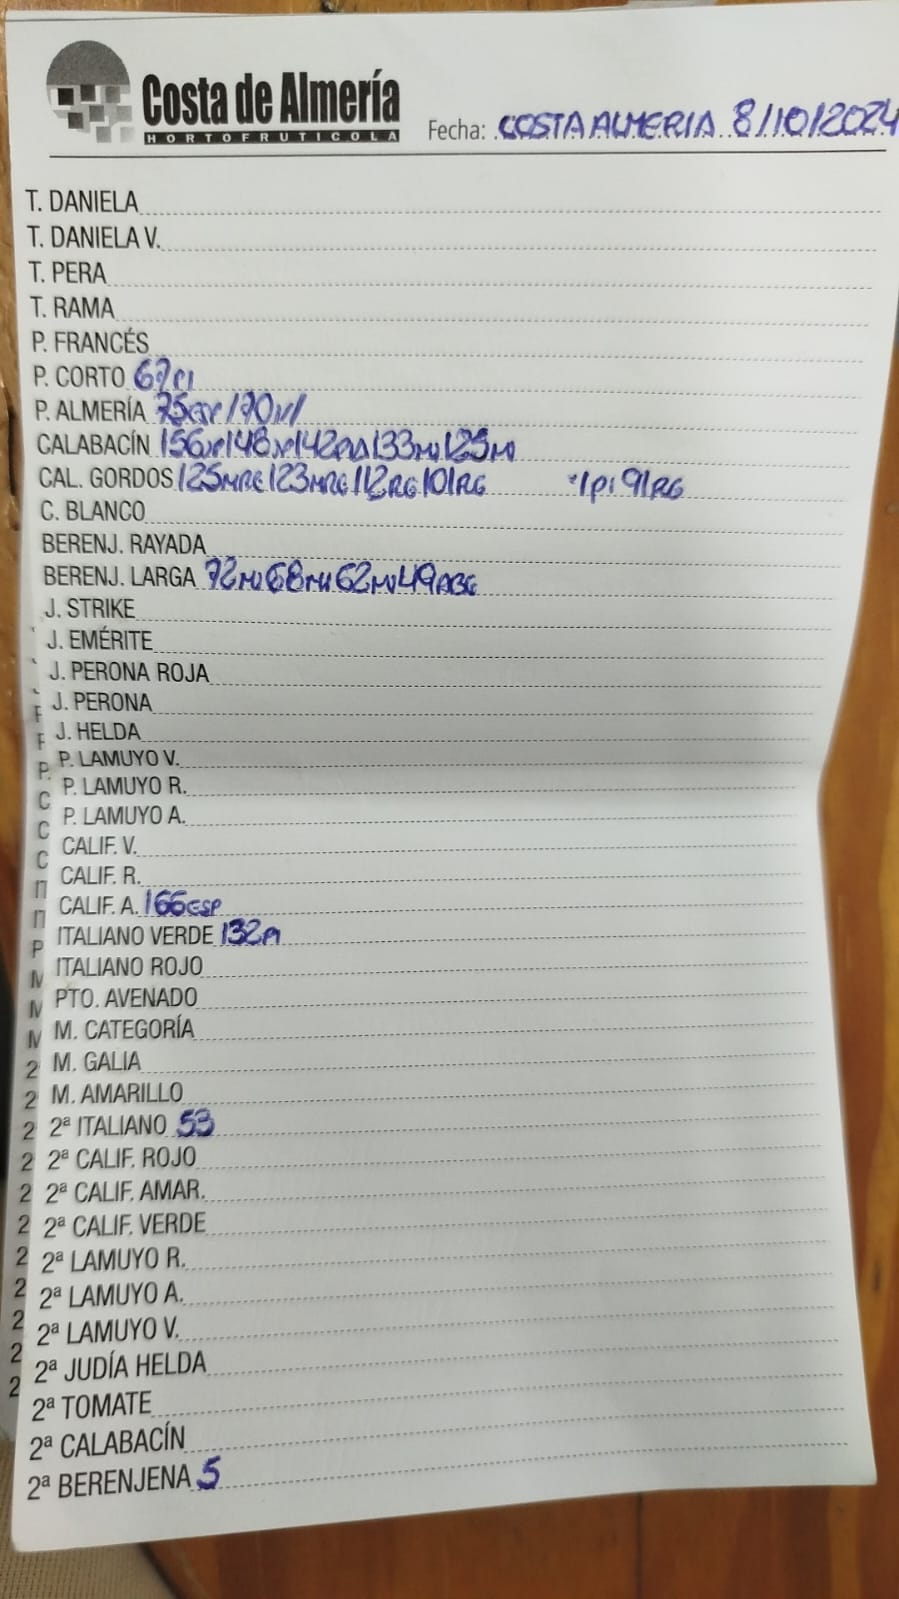 Costa de Almería
HORTOFRUTICOLA
Fecha: COSTA ALMERIA 8/10/2024
T. DANIELA
T. DANIELA V.
T. PERA
T. RAMA
P. FRANCÉS
P. CORTO 67PI
P. ALMERÍA
CALABACÍN
CAL. GORDOS 125MRG 123MRG 112RG 101RG 91RG
C. BLANCO
BERENJ. RAYADA
BERENJ. LARGA
J. STRIKE
J. EMÉRITE
J. PERONA ROJA
J. PERONA
J. HELDA
P. LAMUYO V.
P. LAMUYO R.
P. LAMUYO A.
CALIF. V.
CALIF. R.
CALIF. A. 166ESP
ITALIANO VERDE 132PI
ITALIANO ROJO
PTO. AVENADO
M. CATEGORÍA
M. GALIA
M. AMARILLO
2ª ITALIANO 53
2ª CALIF. ROJO
2ª CALIF. AMAR.
2ª CALIF. VERDE
2ª LAMUYO R.
2ª LAMUYO A.
2ª LAMUYO V.
2ª JUDÍA HELDA
2ª TOMATE
2ª CALABACÍN
2ª BERENJENA 5